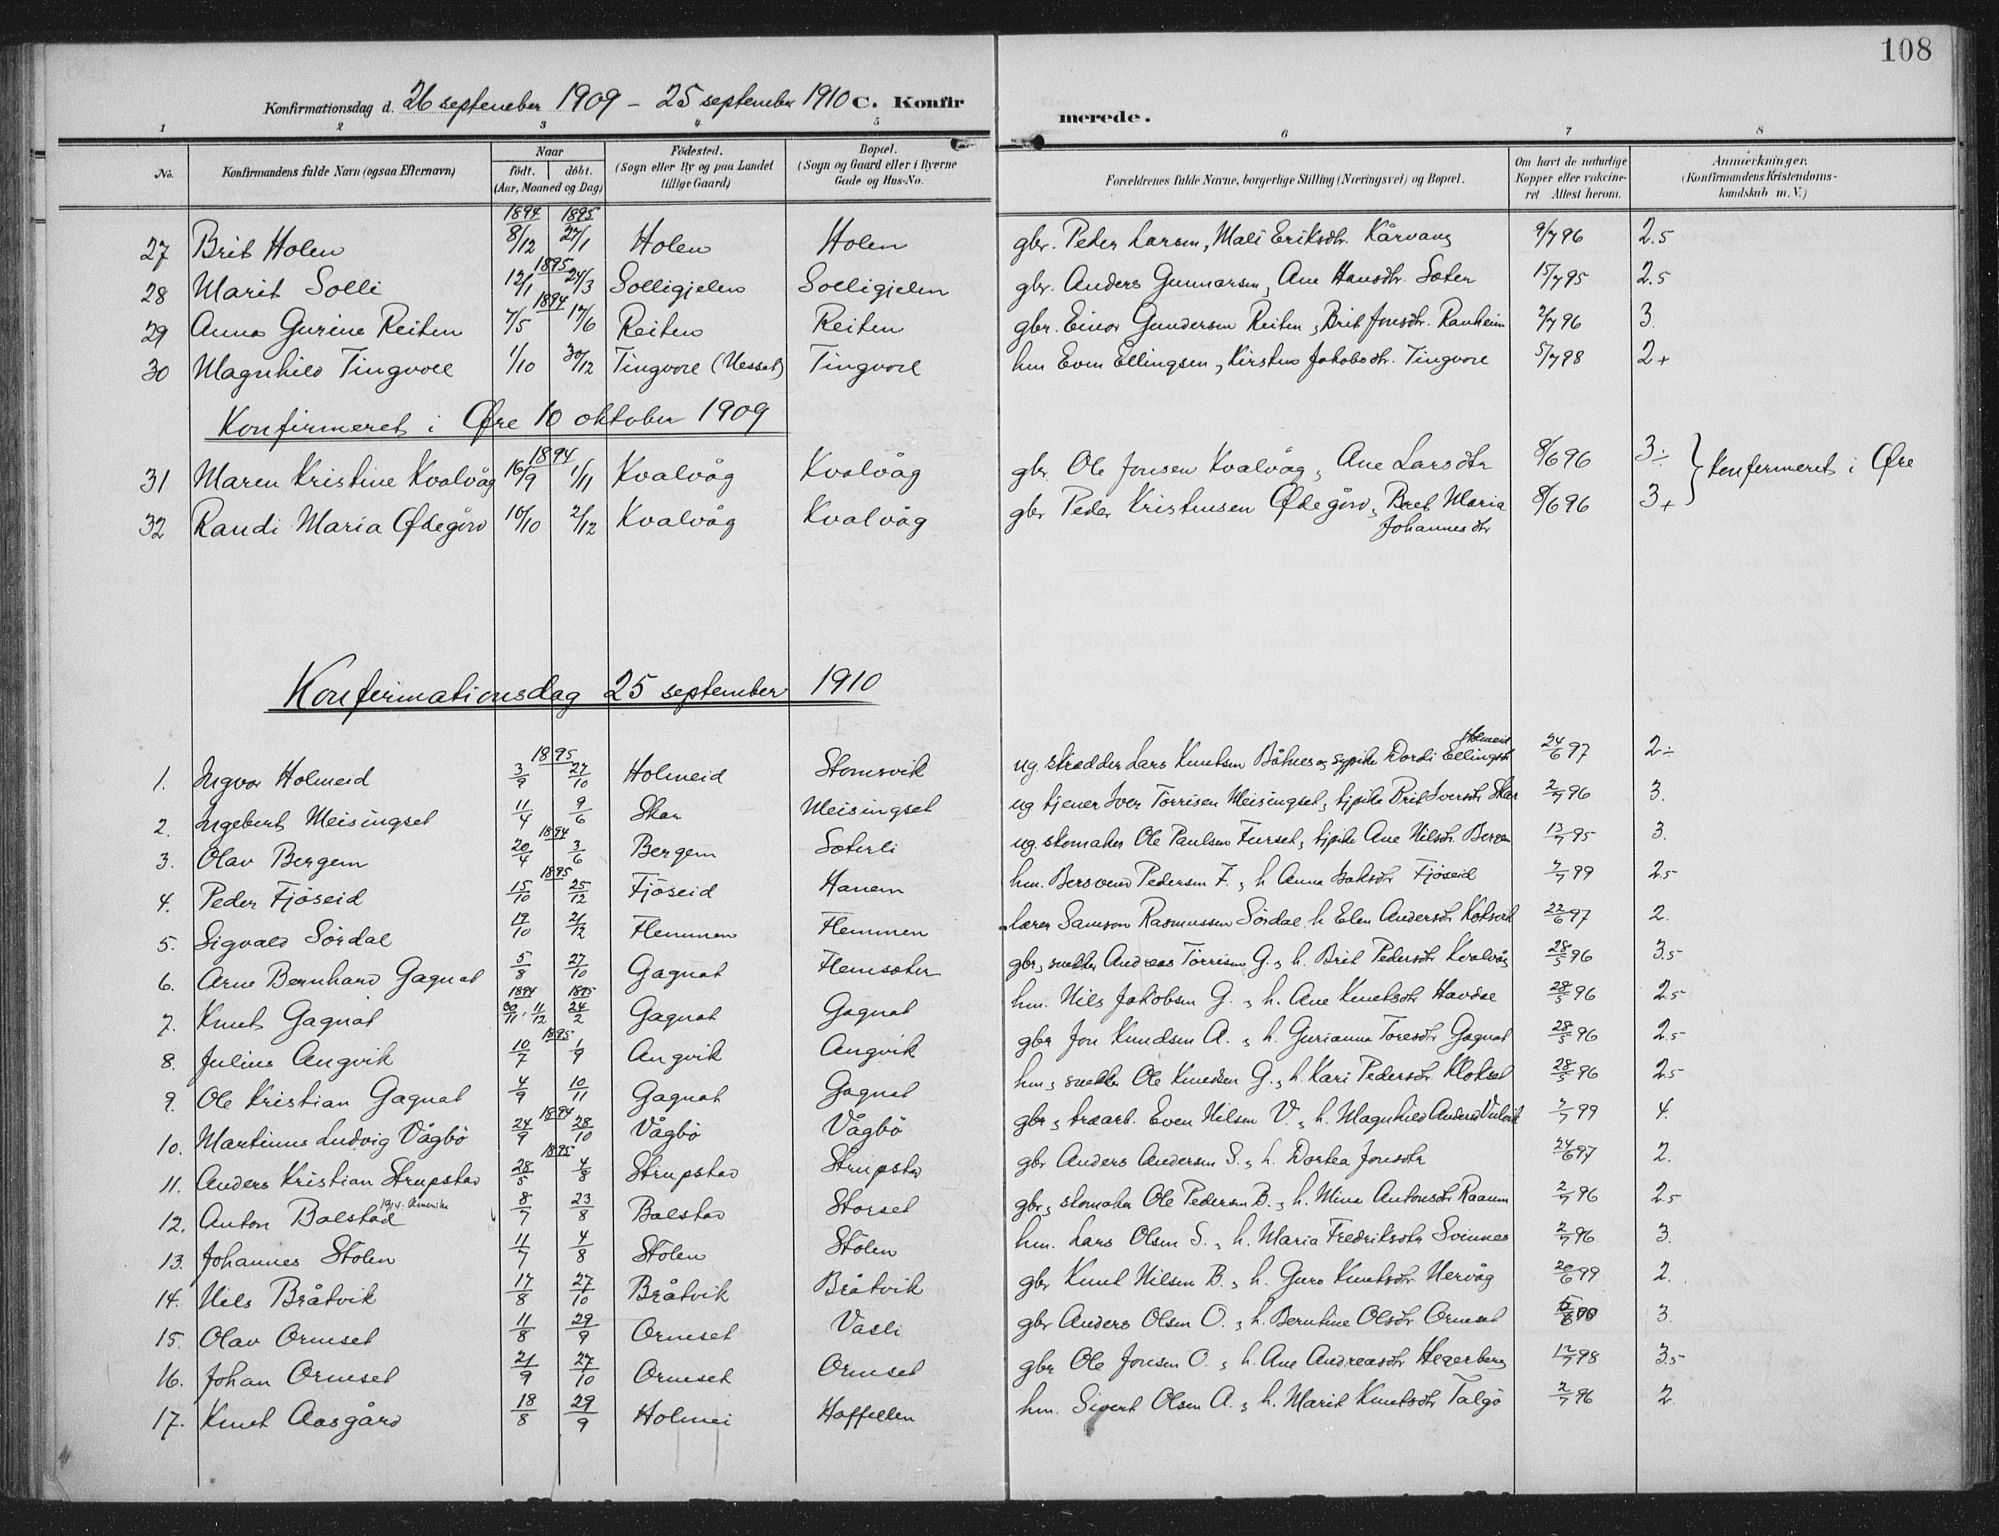 108
Konfirmationsdag d. 26 september 1909 – 25 september 1910 C. Konfirmerede.
1 2 3 4 5 6 7 8
No. Konfirmandens fulde Navn (ogsaa Efternavn) Naar födt. döbt. (Aar, Maaned og Dag) Födested. (Sogn eller By og paa Landet tillige Gaard) Bopæl. (Sogn og Gaard eller i Byerne Gade og Hus-No. Forældrenes fulde Navne, borgerlige Stilling (Næringsvei) og Bopæl. Om havt de naturlige Kopper eller vakcineret Attest herom. Anmærkninger. (Konfirmandens Kristendomskundskab m. V.)
1894 1895
27 Brit Holen 8/12 27/1 Holen Holen gbr. Peder Larsen, Mali Eriksdtr. Kårvang 9/7 96 2.5
1895
28 Marit Solli 12/1 24/3 Solligjelen Solligjelen gbr. Anders Gunnarsen, Ane Hansdtr. Sæter 15/7 95 2.5
1894
29 Anna Gurine Reiten 7/5 17/6 Reiten Reiten gbr. Einar Gundersen Reiten, Brit Jonsdtr. Ranheim 2/7 96 3.
30 Magnhild Tingvoll 1/10 30/12 Tingvoll (Nesset) Tingvoll hm Even Ellingsen, Kirsten Jakobsdtr. Tingvoll 5/7 98 2+
Konfirmeret i Øre 10 oktober 1909
1894
31 Maren Kristine Kvalvåg 16/9 1/11 Kvalvåg Kvalvåg gbr Ole Jonsen Kvalvåg, Ane Larsdtr 8/6 96 3÷ Konfirmeret i Øre
32 Randi Maria Ødegård 10/10 2/12 Kvalvåg Kvalvåg gbr Peder Kristensen Ødegård, Beret Maria Johannesdtr 8/6 96 3+
Konfirmationsdag 25 september 1910
1895
1. Ingvar Holmeid 3/9 27/10 Holmeid Stomsvik ug. skrædder Lars Knutsen Båtnes og sypike Dordi Ellingsdtr Holmeid 24/6 97 2÷
2. Ingebert Meisingset 11/4 9/6 Skar Meisingset ug tjener Iver Torrisen Meisingset, tjpike Brit Iversdtr Skar 2/7 96 3.
1894
3. Olav Bergem 20/4 3/6 Bergem Sæterli ug. skomaker Ole Paulsen Furset, tjpike Ane Nilsdtr. Bergem 13/7 95 3.
1895
4. Peder Fjöseid 15/10 25/12 Fjöseid Hanem hm. Bersvend Pedersen F., h Anna Isaksdtr Fjöseid 7/7 99 2.5
5. Sigvald Sördal 19/10 21/12 Flemmen Flemmen lærer Samson Rasmussen Sördal, h Elen Andersdtr Koksvik 22/6 97 2.
6. Arne Bernhard Gagnat 5/8 27/10 Gagnat Flemsæter gbr, snekker Andreas Törrisen G., h. Brit Pedersdtr Kvalvåg 28/5 96 3.5
1894 1895
7. Knut Gagnat 30/11. 11/12 24/2 Gagnat Gagnat hm. Nils Jakobsen G., h. Ane Knutsdtr Havdal 28/5 96 2.5
1895
8. Julius Angvik 10/7 1/9 Angvik Angvik gbr Jon Knudsen A., h. Gurianna Toresdtr Gagnat 28/5 96 2.5
9. Ole Kristian Gagnat 4/9 10/11 Gagnat Gagnat hm, snekker Ole Knudsen G., h. Kari Pedersdtr. Klokset 28/5 96 2.5
1894
10. Martinus Ludvig Vågbö 24/9 28/10 Vågbö Vågbö gbr, træarb. Even Nilsen V., h. Magnhild Andersd 7/7 99 4.
1895
11. Anders Kristian Strupstad 28/5 4/8 Strupstad Strupstad gbr Anders Andersen S., h. Dortea Jonsdtr 24/6 97 2.
1914: Amerika
12. Anton Bolstad 8/7 23/8 Bolstad Storset gbr, skomaker Ole Pedersen B., h. Mina Antonsdtr Raanm 2/7 96 2.5
13. Johannes Stölen 11/7 4/8 Stölen Stölen hm. Lars Olsen S., h. Maria Fredriksdtr Svinnes 2/7 96 3.
14. Nils Bråtvik 17/8 27/10 Bråtvik Bråtvik gbr Knut Nilsen B., h. Guro Knutsdtr. Nervåg 20/6 99 2.
15. Olav Ormset 11/8 29/9 Ormset Vasli gbr Anders Olsen O., h. Berntine Olsdtr. Ormset 3.
16. Johan Ormset 21/9 27/10 Ormset Ormset gbr Ole Jonsen O., h. Ane Andreasdtr Hegerberg 12/7 98 3.5
17. Knut Aasgård 18/8 29/9 Holmei Hoffellen hm. Sivert Olsen A., h. Marit Knutsdtr Talgö 2/7 96 2.